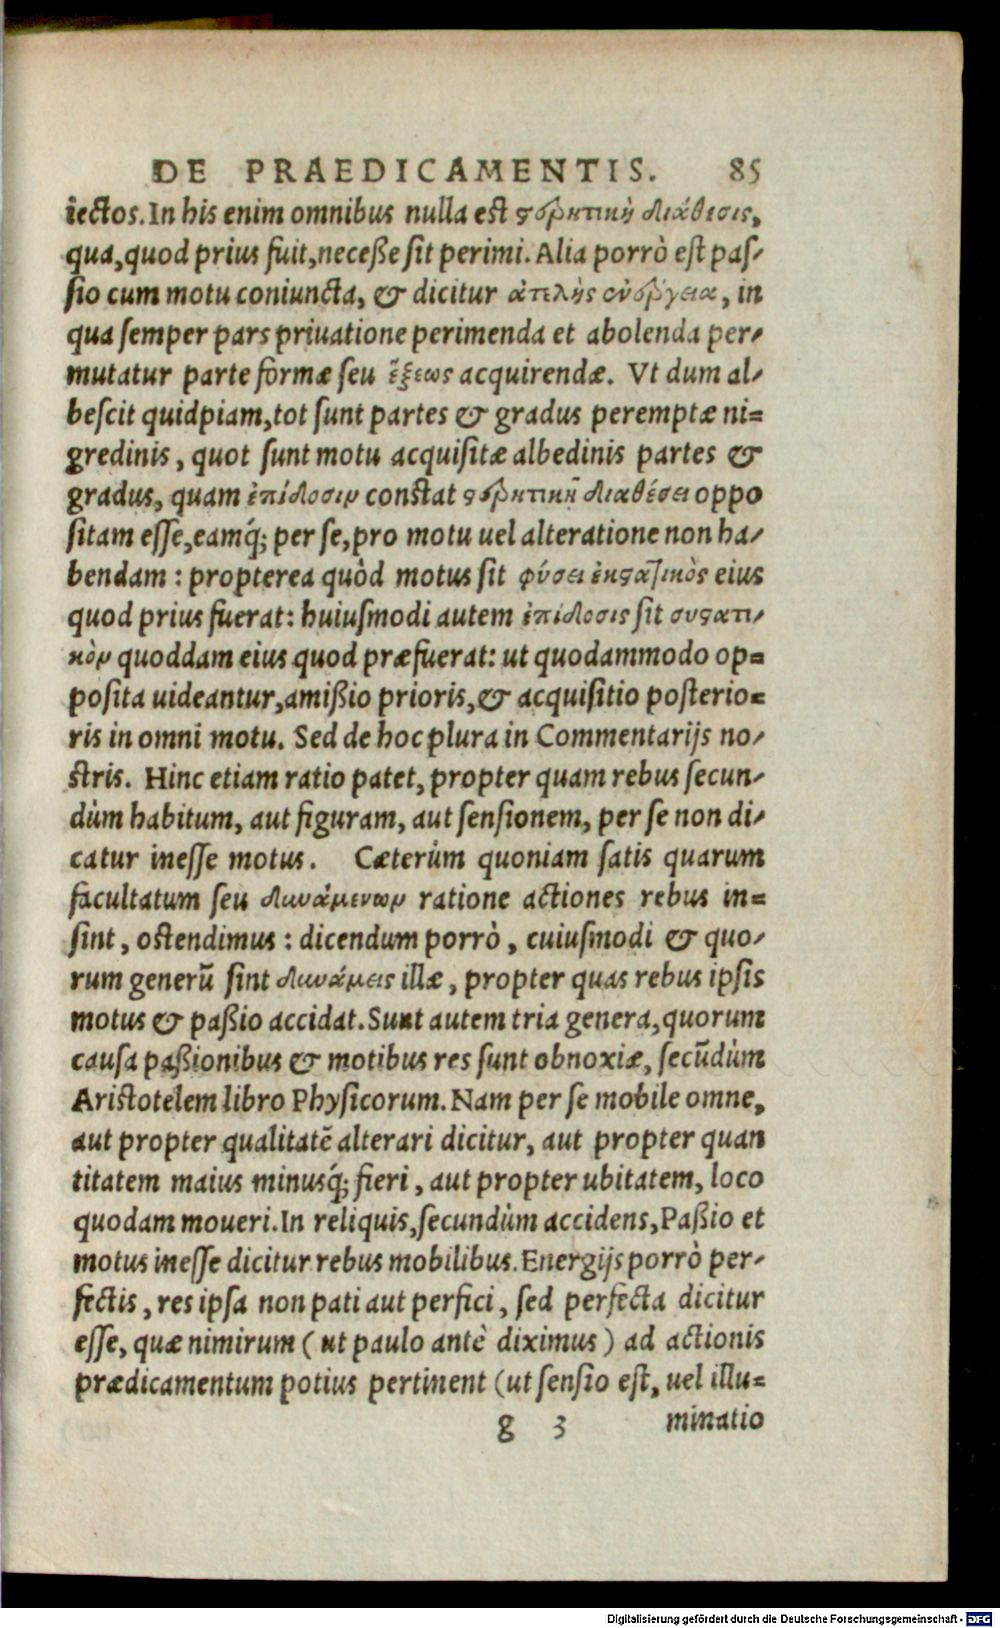 DE PRAEDICAMENTIS. 85
iectos. In his enim omnibus nulla est ϛερητικὴ διάθεσις,
qua, quod prius fuit, neceße sit perimi. Alia porrò est pas-
sio cum motu coniuncta, & dicitur ἀτελὴς ἐνέργεια, in
qua semper pars priuatione perimenda et abolenda per-
mutatur parte formæ seu ἕξεως acquirendæ. Vt dum al-
bescit quidpiam, tot sunt partes & gradus peremptæ ni=
gredinis, quot sunt motu acquisitæ albedinis partes &
gradus, quam ἐπίδοσιν constat ϛερητικῇ διαθέσει oppo
sitam esse, eamq́; per se, pro motu uel alteratione non ha-
bendam: propterea quòd motus sit φύσει ἐκϛατικὸς eius
quod prius fuerat: huiusmodi autem ἐπίδοσις sit συϛατι-
κὸν quoddam eius quod præfuerat: ut quodammodo op=
posita uideantur, amißio prioris, & acquisitio posterio=
ris in omni motu. Sed de hoc plura in Commentarijs no-
stris. Hinc etiam ratio patet, propter quam rebus secun-
dùm habitum, aut figuram, aut sensionem, per se non di-
catur inesse motus. Cæterùm quoniam satis quarum
facultatum seu δυνάμενων ratione actiones rebus in=
sint, ostendimus: dicendum porrò, cuiusmodi & quo-
rum generū sint δυνάμεις illæ, propter quas rebus ipsis
motus & paßio accidat. Sunt autem tria genera, quorum
causa paßionibus & motibus res sunt obnoxiæ, secūdùm
Aristotelem libro Physicorum. Nam per se mobile omne,
aut propter qualitatē alterari dicitur, aut propter quan
titatem maius minusq́; fieri, aut propter ubitatem, loco
quodam moueri. In reliquis, secundùm accidens, Paßio et
motus inesse dicitur rebus mobilibus. Energijs porrò per-
fectis, res ipsa non pati aut perfici, sed perfecta dicitur
esse, quæ nimirum (ut paulo antè diximus) ad actionis
prædicamentum potius pertinent (ut sensio est, uel illu=
g 3 minatio
Digitalisierung gefördert durch die Deutsche Forschungsgemeinschaft - DFG